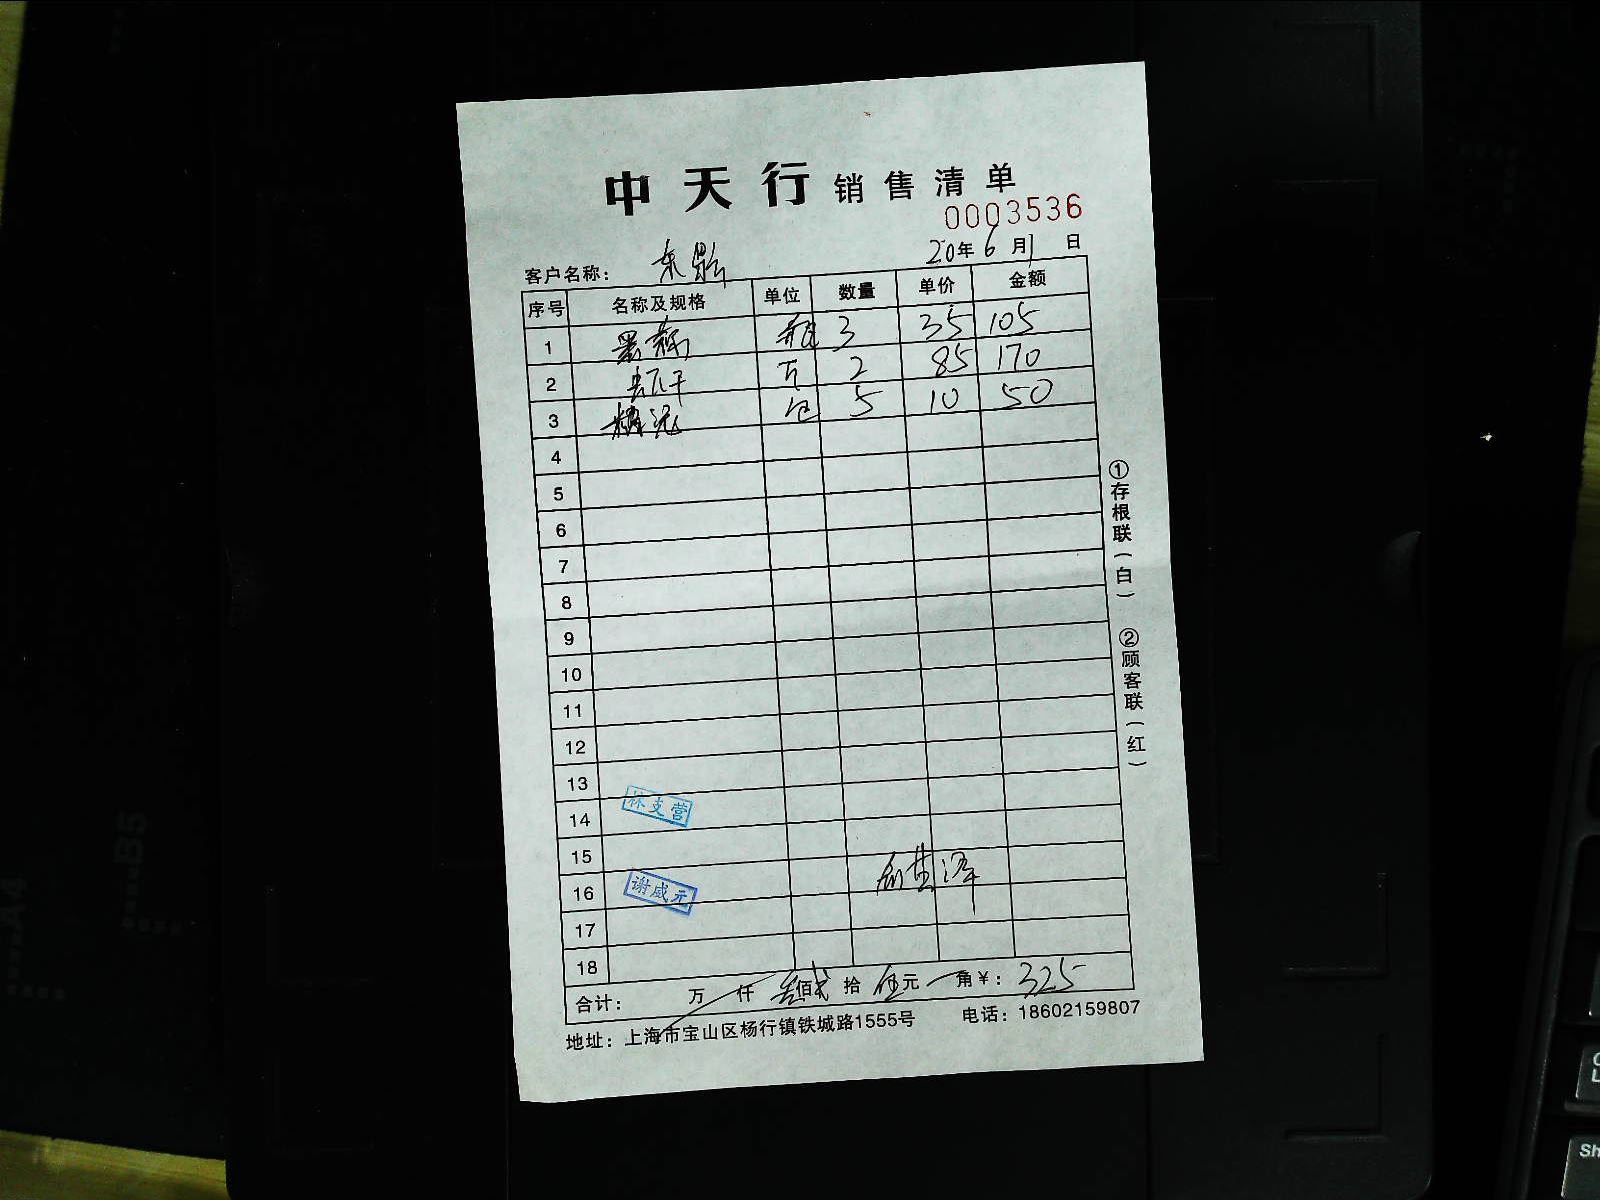 中天行销售清单
0003536
客户名称：东 20年6月1日
序号 名称及规格 单位 数量 单价 金额
1 瓶 3 35 105
2 2 85 170
3 包 5 10 50
4
5
6
7
8
9
10
11
12
13
14 林支营
15
16 谢威元
17
18
合计： 万 仟 叁佰贰拾伍元 角￥：325
地址：上海市宝山区杨行镇铁城路1555号 电话：18602159807
①存根联（白） ②顾客联（红）
B5
A4
Sh